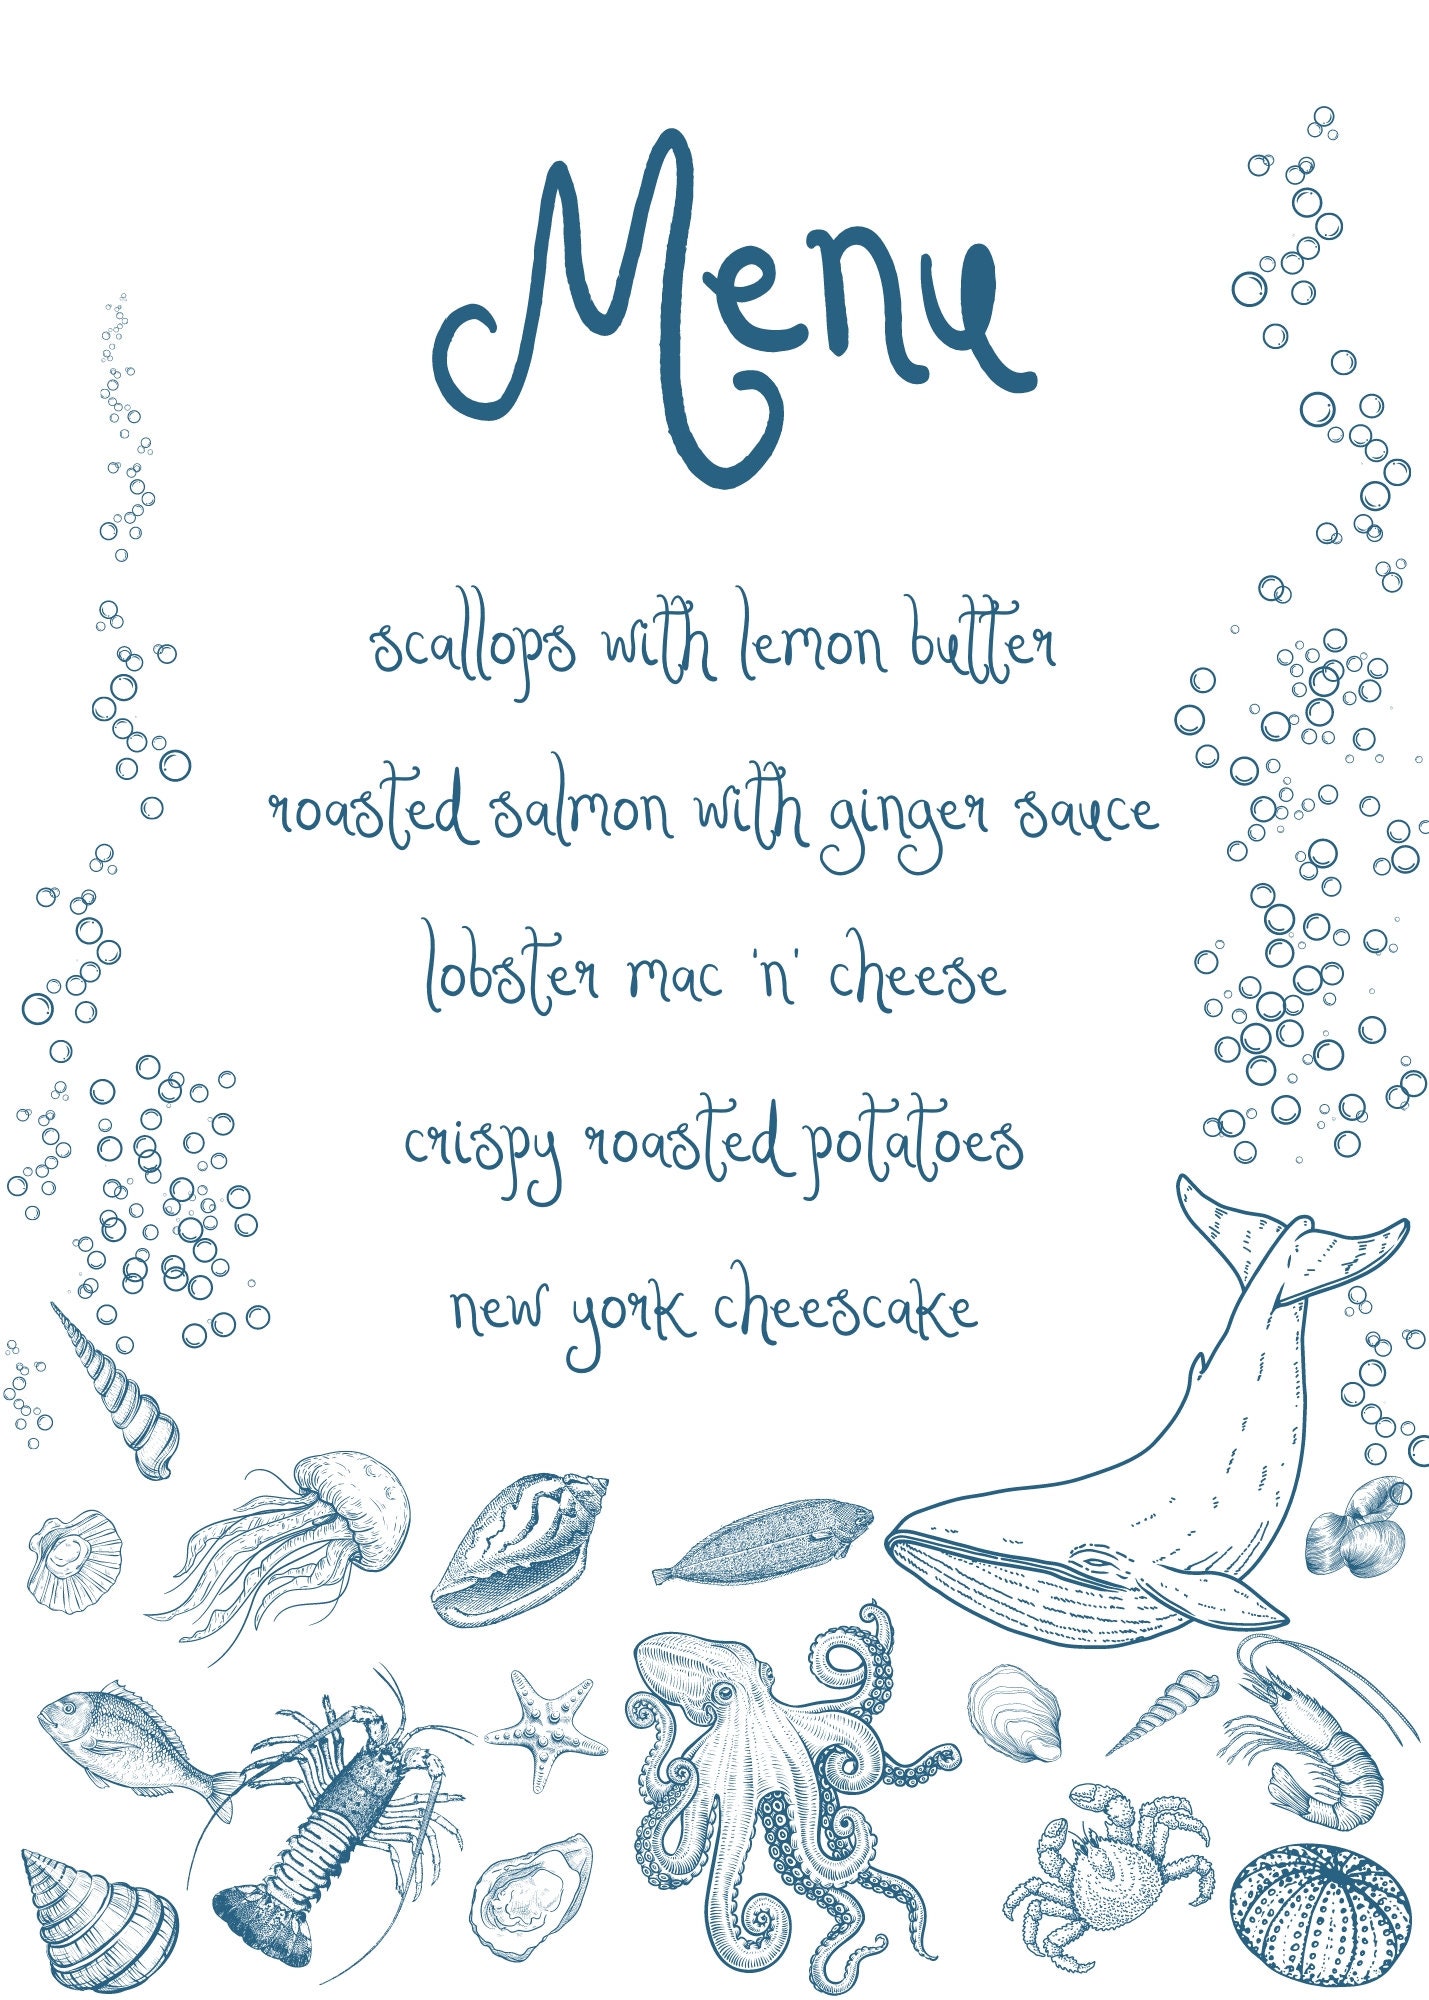 Menu
scallops with lemon butter
roasted salmon with ginger sauce
lobster mac 'n' cheese
crispy roasted potatoes
new york cheescake